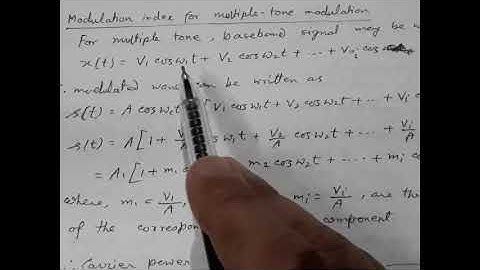 Modulation index for multiple-tone modulation
For multiple tone, baseband signal may be w
x(t) = V₁ cosω₁t + V₂ cosω₂t + ... + Vᵢ cos
∴ modulated wave can be written as
s(t) = A cosω t V₁ cosω₁t + V₂ cosω₂t + ... + Vᵢ co
s(t) = A[1 + V₁/A t + V₂/A cosω₂t + ... + Vᵢ/A
= A₁[1 + m₁ co m₂ cosω₂t + ... + mᵢ co
where, m₁ = V₁/A, mᵢ = Vᵢ/A, are th
of the component
∴ Carrier power